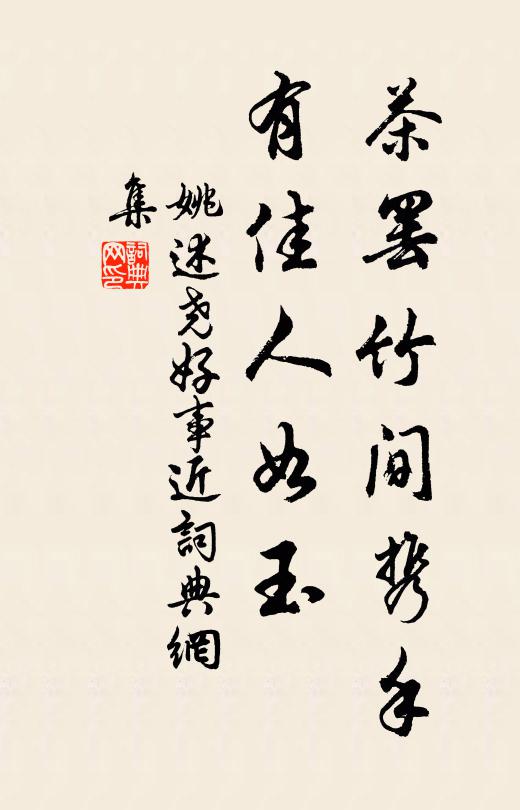 茶罢竹间携手
有佳人如玉
姚述尧好事近詞典網
集
詞典
网印